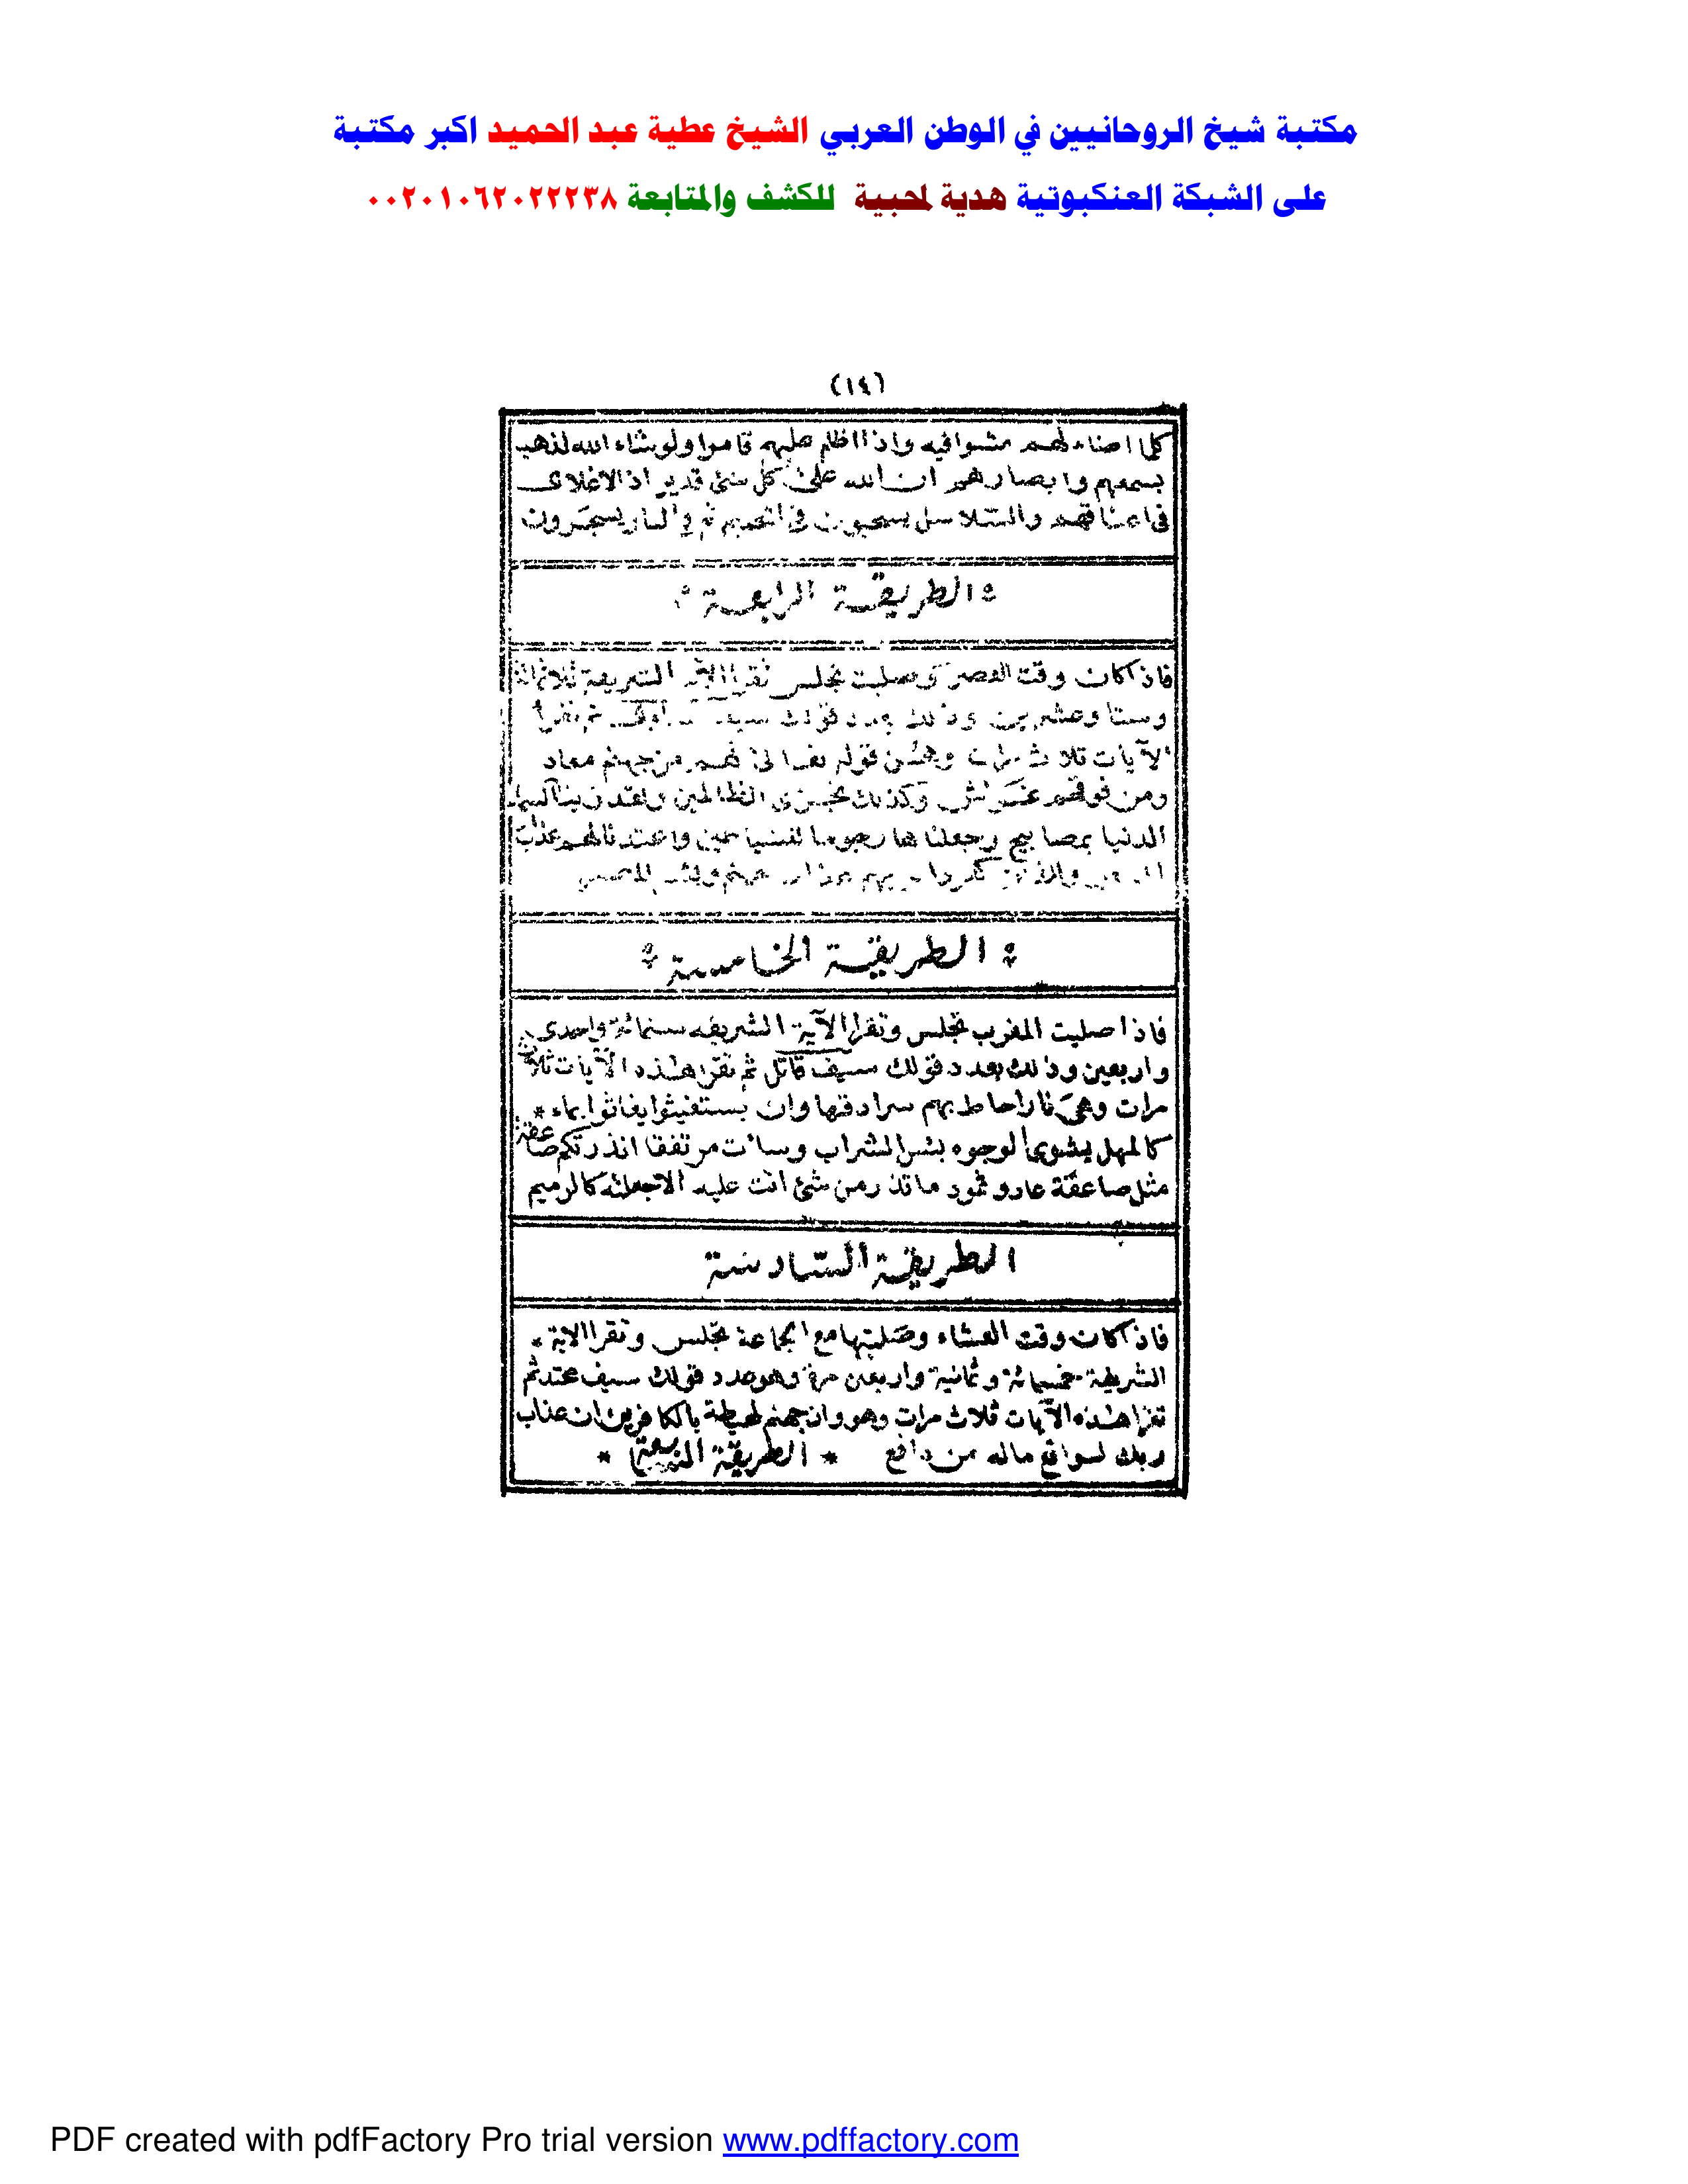 مكتبة شيخ الروحانيين في الوطن العربي الشيخ عطية عبد الحميد اكبر مكتبة
على الشبكة العنكبوتية هدية لمحبية للكشف والمتابعة ٠٠٢٠١٠٦٢٠٢٢٢٣٨
(١٤)
كلما اضاء لهم مشوا فيه واذا اظلم عليهم قاموا ولو شاء الله لذهب
بسمعهم وابصارهم ان الله على كل شئ قدير اذ الاغلال
فى اعناقهم والسلاسل يسحبون فى الحميم ثم فى النار يسجرون
الطريقة الرابعة
فاذا كان وقت العصر وصليت تجلس تقرا الآية الشريفة ثلاثمائة
وستا وعشرين وذلك بعدد قولك سيف ثم تقرأ
الآيات ثلاث مرات وهى قوله تعالى لهم من جهنم مهاد
ومن فوقهم غواش وكذلك نجزى الظالمين ولقد زينا السماء
الدنيا بمصابيح وجعلناها رجوما للشياطين واعتدنا لهم عذاب
السعير والذين كفروا بربهم عذاب جهنم وبئس المصير
* الطريقة الخامسة *
فاذا صليت المغرب تجلس وتقرا الآية الشريفه ستمائة واحدى
واربعين وذلك بعدد قولك سيف قاتل ثم تقرا هذه الآيات ثلاث
مرات وهى نارا احاط بهم سرادقها وان يستغيثوا يغاثوا بماء *
كالمهل يشوى الوجوه بئس الشراب وساءت مرتفقا انذرتكم صاعقة
مثل صاعقة عاد وثمود ما تذر من شئ اتت عليه الا جعلته كالرميم
الطريقة السادسة
فاذا كان وقت العشاء وصليتها مع الجماعة تجلس وتقرا الاية *
الشريفة خمسمائة وثمانية واربعين مرة وهو عدد قولك سيف محتد ثم
تقرا هذه الآيات ثلاث مرات وهو وان جهنم لمحيطة بالكافرين ان عذاب
ربك لسواقع ماله من دافع * الطريقة *
PDF created with pdfFactory Pro trial version www.pdffactory.com